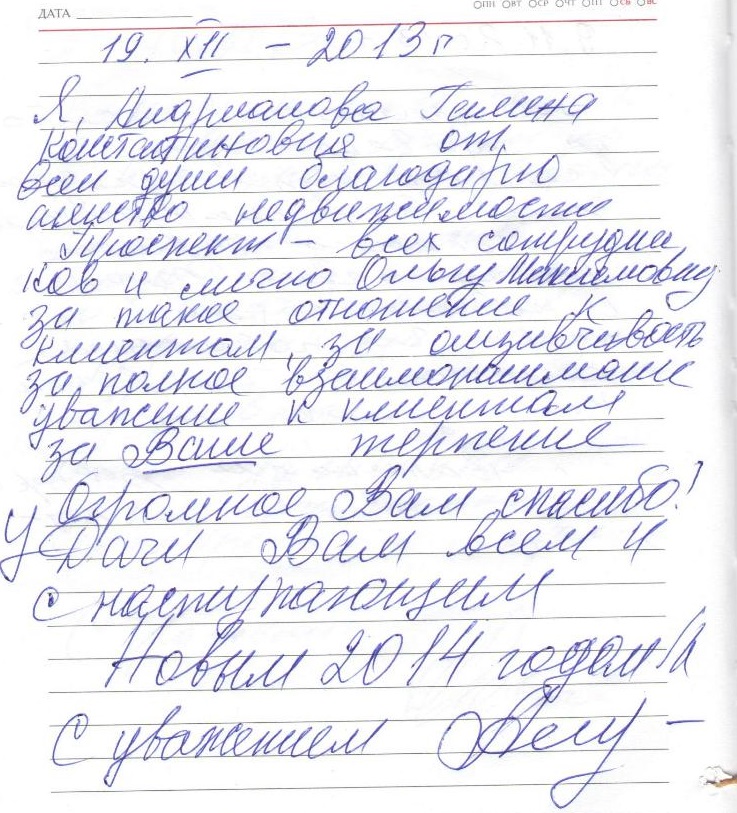 ДАТА
ПН ВТ СР ЧТ ПТ СБ ВС
19. XII – 2013 г
Я, Андрианова Галина
Константиновна от
всей души благодарю
агенство недвижимости
Проспект – всех сотрудни
ков и лично Ольгу Максимовну
за такое отношение к
клиентам, за отзывчевость
за полное взаимопонимание
уважение к клиентам
за Ваше терпение
Огромное Вам спасибо!
Удачи Вам всем и
с наступающим
Новым 2014 годом!
С уважением